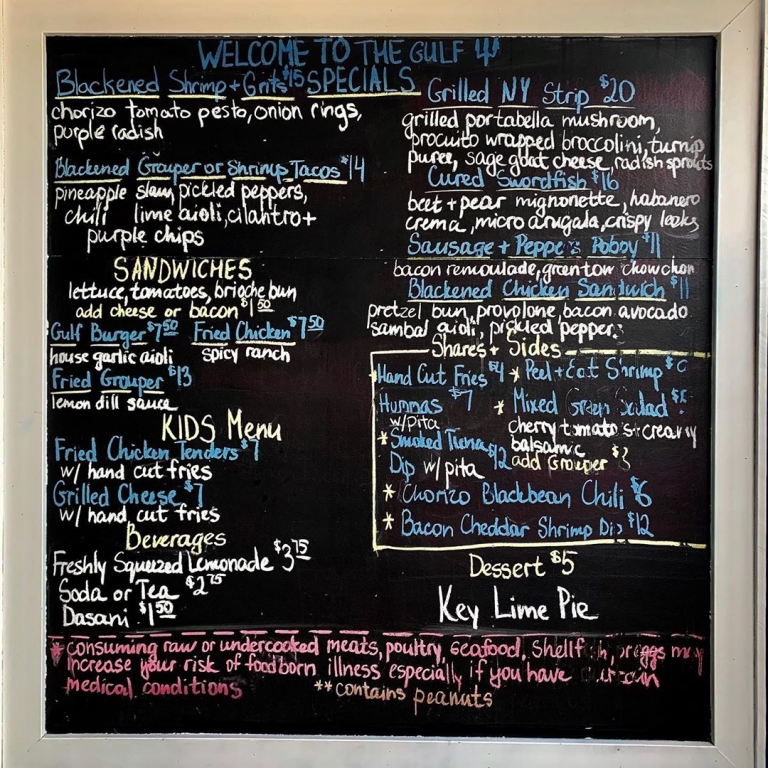 WELCOME TO THE GULF
Blackened Shrimp + Grits $15 SPECIALS
chorizo tomato pesto, onion rings,
purple radish
Blackened Grouper or Shrimp Tacos $14
pineapple slaw, pickled peppers,
chili lime aioli, cilantro +
purple chips
SANDWICHES
lettuce, tomatoes, brioche bun
add cheese or bacon $1.50
Gulf Burger $7.50 Fried Chicken $7.50
house garlic aioli spicy ranch
Fried Grouper $13
lemon dill sauce
KIDS Menu
Fried Chicken Tenders $7
w/ hand cut fries
Grilled Cheese $7
w/ hand cut fries
Beverages
Freshly Squeezed Lemonade $3.75
Soda or Tea $2.75
Dasani $1.50
Grilled NY Strip $20
grilled portabella mushroom,
procuito wrapped broccolini, turnip
puree, sage goat cheese, radish sprouts
Cured Swordfish $16
beet + pear mignonette, habanero
crema, micro arugala, crispy leeks
Sausage + Peppers Poboy $11
bacon remoulade, green tom chowchow
Blackened Chicken Sandwich $11
pretzel bun, provolone, bacon avocado
sambal aioli, pickled pepper
Shares + Sides
Hand Cut Fries $4
Hummas $7
w/ Pita
* Smoked Tuna
Dip w/ pita $12
* Peel + Eat Shrimp
* Mixed Green Salad
cherry tomatoes + creamy
balsamic
add Grouper
* Chorizo Blackbean Chili $6
* Bacon Cheddar Shrimp Dip $12
Dessert $5
Key Lime Pie
* consuming raw or undercooked meats, poultry, seafood, shellfish, or eggs may
increase your risk of foodborn illness especially if you have certain
medical conditions
** contains peanuts